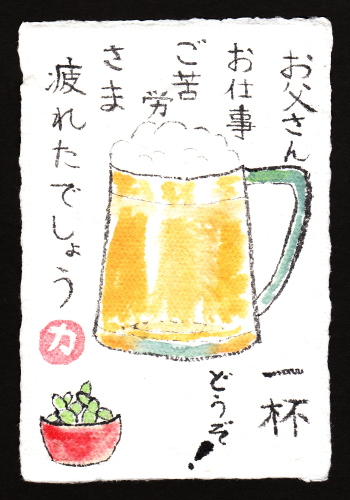 お父さん
お仕事
ご苦労
さま
疲れたでしょう
一杯
どうぞ!
カ